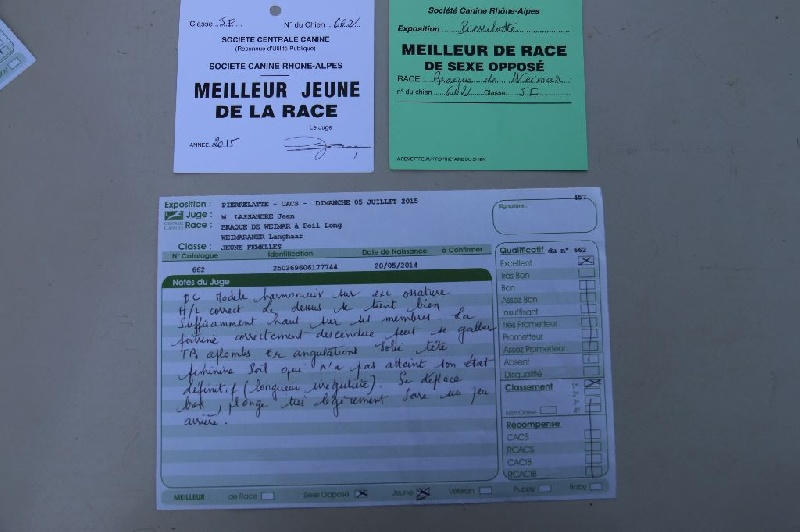 Classe J.F. N° du Chien 662
SOCIETE CENTRALE CANINE
(Reconnue d'Utilité Publique)
SOCIETE CANINE RHONE-ALPES
MEILLEUR JEUNE
DE LA RACE
Le Juge
ANNÉE 2015
Société Canine Rhône-Alpes
Exposition Pierrelatte
MEILLEUR DE RACE
DE SEXE OPPOSÉ
RACE Braque de Weimar
n° du chien 662 Classe J F
Exposition : PIERRELATTE - CACS - DIMANCHE 05 JUILLET 2015
Juge : M LASSANDRE Jean
Race : BRAQUE DE WEIMAR à Poil Long
WEIMARANER Langhaar
Classe : JEUNE FEMELLES
N° Catalogue Identification Date de Naissance à Confirmer
662 250269606177744 20/05/2014
Notes du Juge
DC Modèle harmonieux sur exc ossature
H/L correct Le dessus se tient bien
Suffisamment haut sur ses membres La
poitrine correctement descendue peut se galber
TB aplombs et angulations Jolie tête
féminine Poil qui n'a pas atteint son état
définitif (longueur irrégulière). Se déplace
bien, plonge très légèrement faire un peu
arrière.
Signature :
Qualificatif du n° 662
Excellent
Très Bon
Bon
Assez Bon
Insuffisant
Très Prometteur
Prometteur
Assez Prometteur
Absent
Disqualifié
Classement
Non Classé
Récompense
CACS
RCACS
CACIB
RCACIB
MEILLEUR : de Race Sexe Opposé Jeune Vétéran Puppy Baby